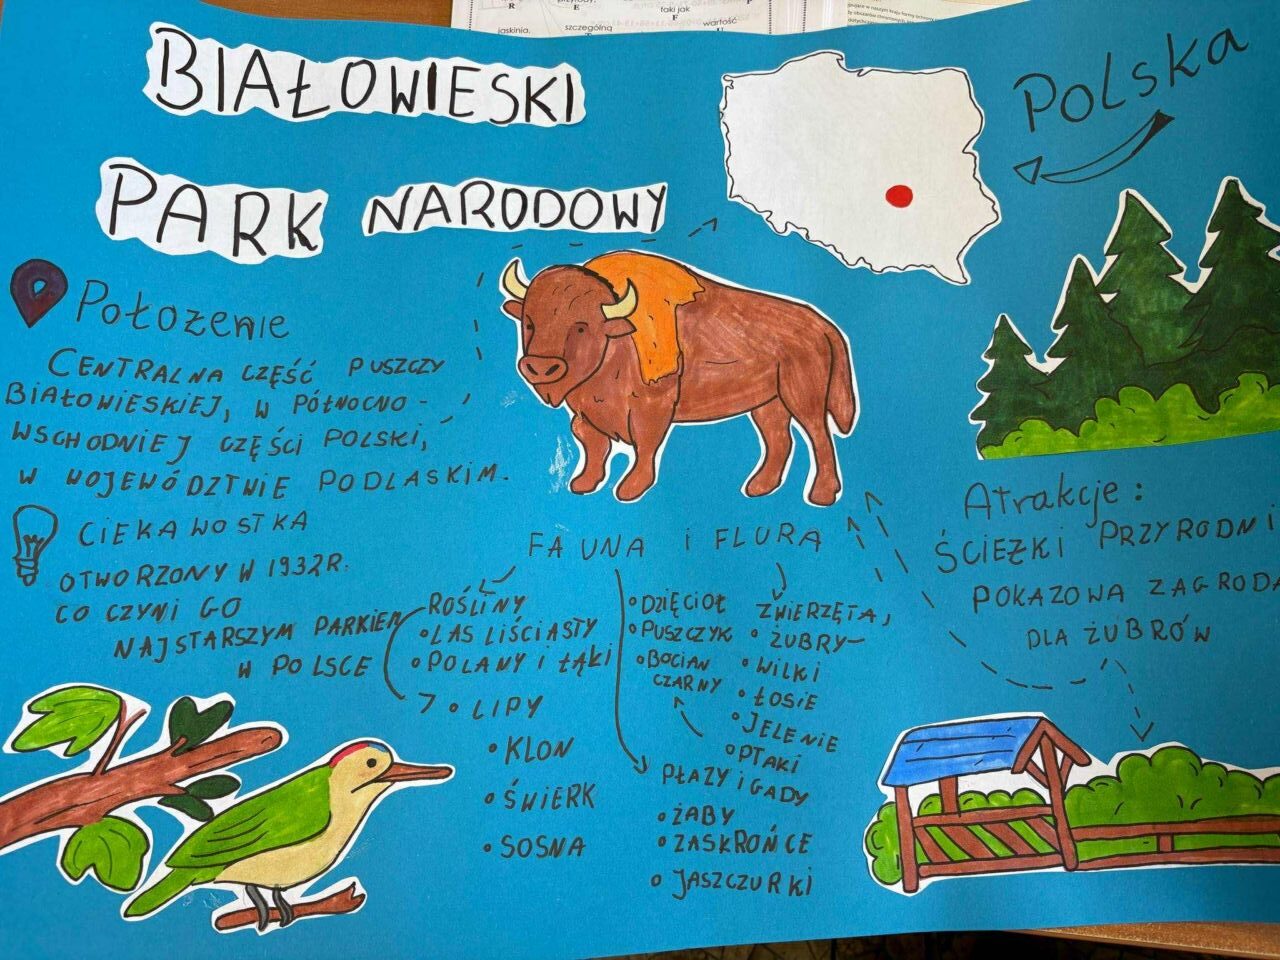 BIAŁOWIESKI
PARK NARODOWY
Polska
Położenie
CENTRALNA CZĘŚĆ PUSZCZY
BIAŁOWIESKIEJ, W PÓŁNOCNO-
WSCHODNIEJ CZĘŚCI POLSKI,
W WOJEWÓDZTWIE PODLASKIM.
CIEKAWOSTKA
OTWORZONY W 1932R.
CO CZYNI GO
NAJSTARSZYM PARKIEM
W POLSCE
FAUNA i FLURA
ROŚLINY
LAS LIŚCIASTY
POLANY I ŁĄKI
LIPY
KLON
ŚWIERK
SOSNA
DZIĘCIOŁ
PUSZCZYK
BOCIAN
CZARNY
ZWIERZĘTA,
ŻUBRY
WILKI
ŁOSIE
JELENIE
PTAKI
PŁAZY I GADY
ŻABY
ZASKROŃCE
JASZCZURKI
Atrakcje:
ŚCIEŻKI PRZYRODNI
POKAZOWA ZAGRODA
DLA ŻUBRÓW
R
E
taki jak
F
jaskinia,
szczególną
wartość